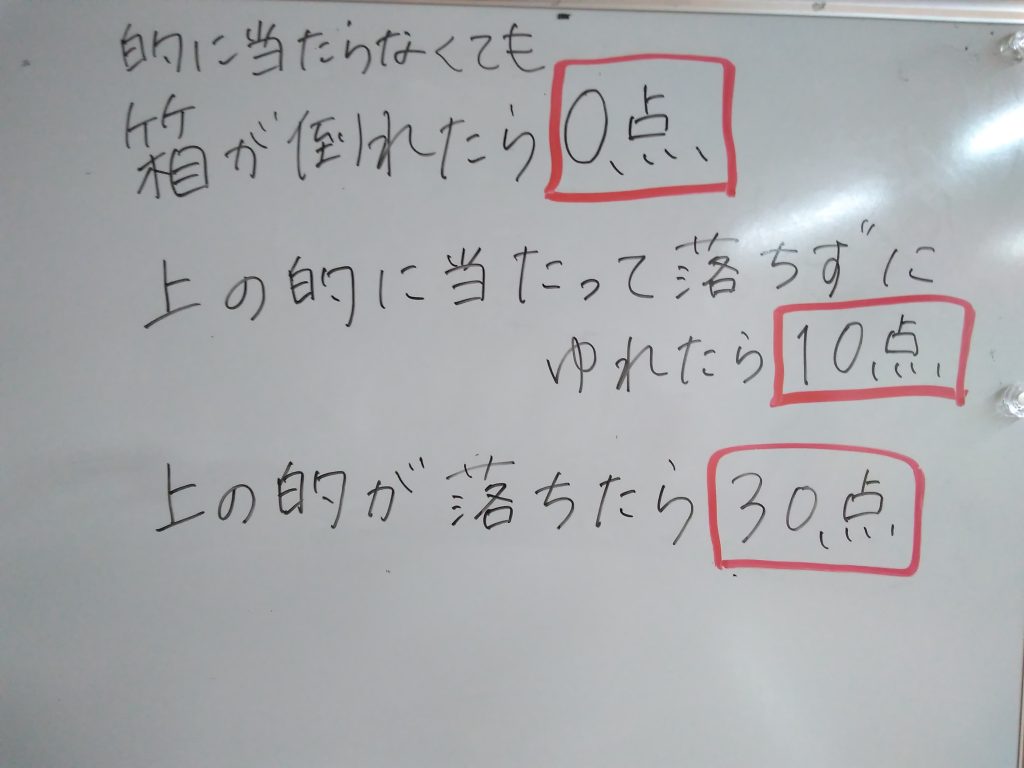 的に当たらなくても
箱が倒れたら 0点
上の的に当たって落ちずに
ゆれたら 10点
上の的が落ちたら 30点